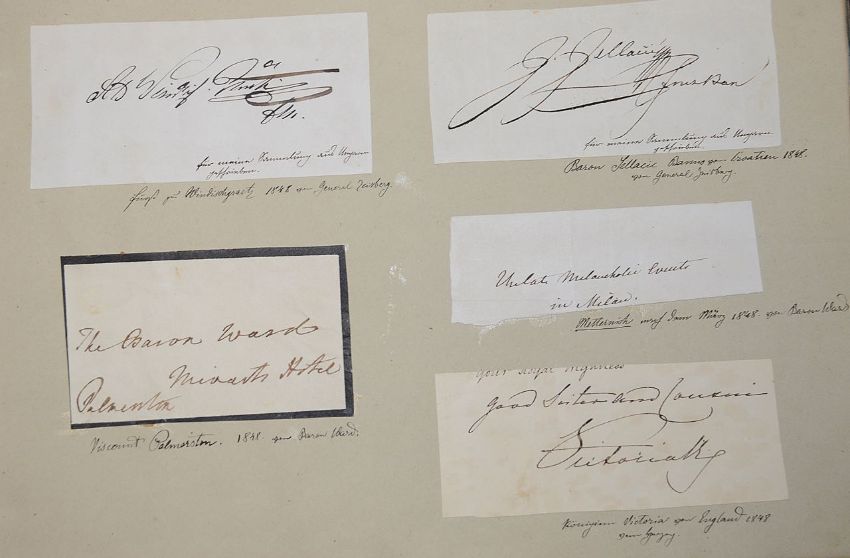 A Windisch
FM.
für meine Sammlung aus Ungarn
geschrieben.
Fürst zu Windischgraetz 1848 von General Zeisberg.
J. Jellacic
für meine Sammlung aus Ungarn
geschrieben.
Baron Jellacic Banus von Croatien 1848.
von General Zeisberg.
The Baron Ward
Mivarts Hotel
Palmerston
Viscount Palmerston. 1848. von Baron Ward.
Melancholic Events
in Milan.
Metternich nach dem März 1848. von Baron Ward
Your Royal Highness
good Sister and Cousin
Victoria R
Königinn Victoria von England 1848
vom Herzog.